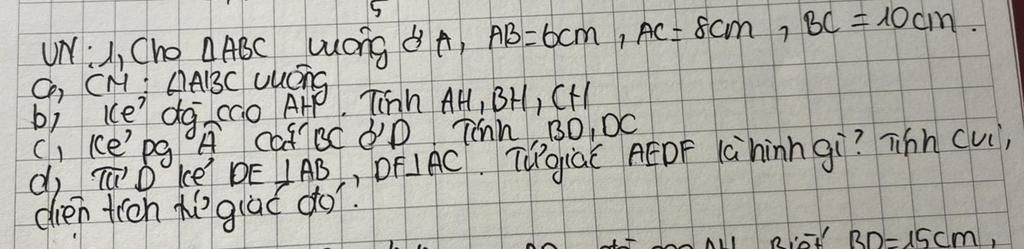 5
VN: 1, Cho ΔABC vuông ở A, AB=6cm, AC=8cm, BC=10cm.
a, CM: ΔABC vuông
b, Kẻ đg cao AH. Tính AH, BH, CH
c, Kẻ pg Â cắt BC ở D Tính BD, DC
d, Từ D kẻ DE⊥AB, DF⊥AC. Tứ giác AEDF là hình gì? Tính cvi,
diện tích tứ giác đó.
AH Biết BD=15cm,